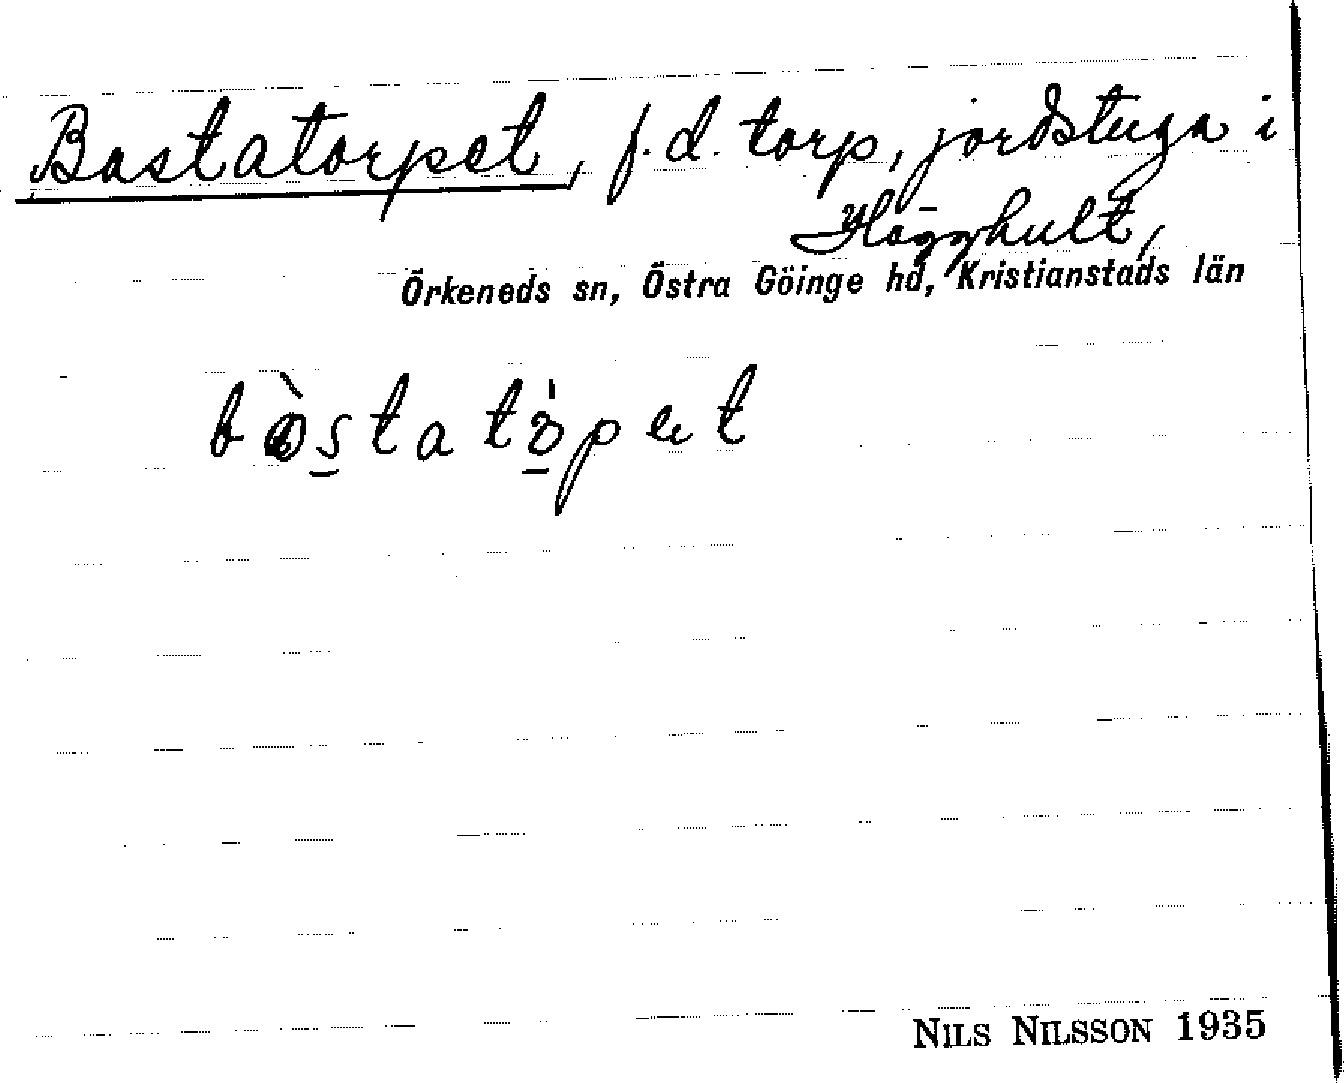 Bastatorpet, f.d. torp, jordstuga i
Hägghult,
Örkeneds sn, Östra Göinge hd, Kristianstads län
NILS NILSSON 1935